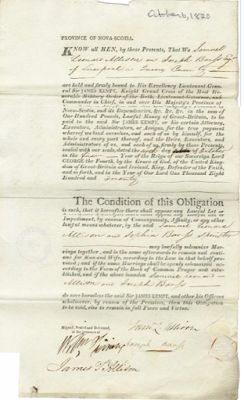 October 6, 1820
PROVINCE OF NOVA-SCOTIA.
KNOW all MEN, by these Presents, That We Samuel
Leonard Allison and Joseph
of Liverpool in
are held and firmly bound to His Excellency Lieutenant General
Sir JAMES KEMPT, Knight Grand Cross of the Most Honorable
Military Order of the Bath, Lieutenant Governor, and
Commander in Chief, in and over His Majesty's Province of
Nova-Scotia, and its Dependencies, &c. &c. &c. in the sum of
One Hundred Pounds, Lawful Money of Great-Britain, to be
paid to the said Sir JAMES KEMPT, or his certain Attorney,
Executors, Administrators, or Assigns, for the true payment
whereof we bind ourselves, and each of us by himself, for the
whole and every part thereof, and the Heirs, Executors and
Administrators of us, and each of us, firmly by these Presents,
sealed with our seals, dated the day of October
in the Year of the Reign of our Sovereign Lord
GEORGE the Fourth, by the Grace of God, of the United Kingdom
of Great-Britain and Ireland, King, Defender of the Faith,
and so forth, and in the Year of our Lord One Thousand Eight
Hundred and twenty
The Condition of this Obligation
is such, that if hereafter there shall not appear any Lawful Let or
Impediment, by reason of Consanguinity, Affinity, or any other
lawful means whatever, by the said Samuel Leonard
Allison and Sophia
may lawfully solemnize Marriage
together, and in the same afterwards to remain and continue
for Man and Wife, according to the Law in that behalf
provided; and if the same Marriage shall be openly solemnized according
to the Form of the Book of Common Prayer now established,
and if the above bounden Samuel Leonard
Allison and Joseph
do save harmless the said Sir JAMES KEMPT, and other his Officers
whatsoever, by reason of the Premises, then this Obligation
to be void, else to remain in full Force and Virtue.
Signed, Sealed and Delivered,
in the presence of
Allison
Joseph
James Allison